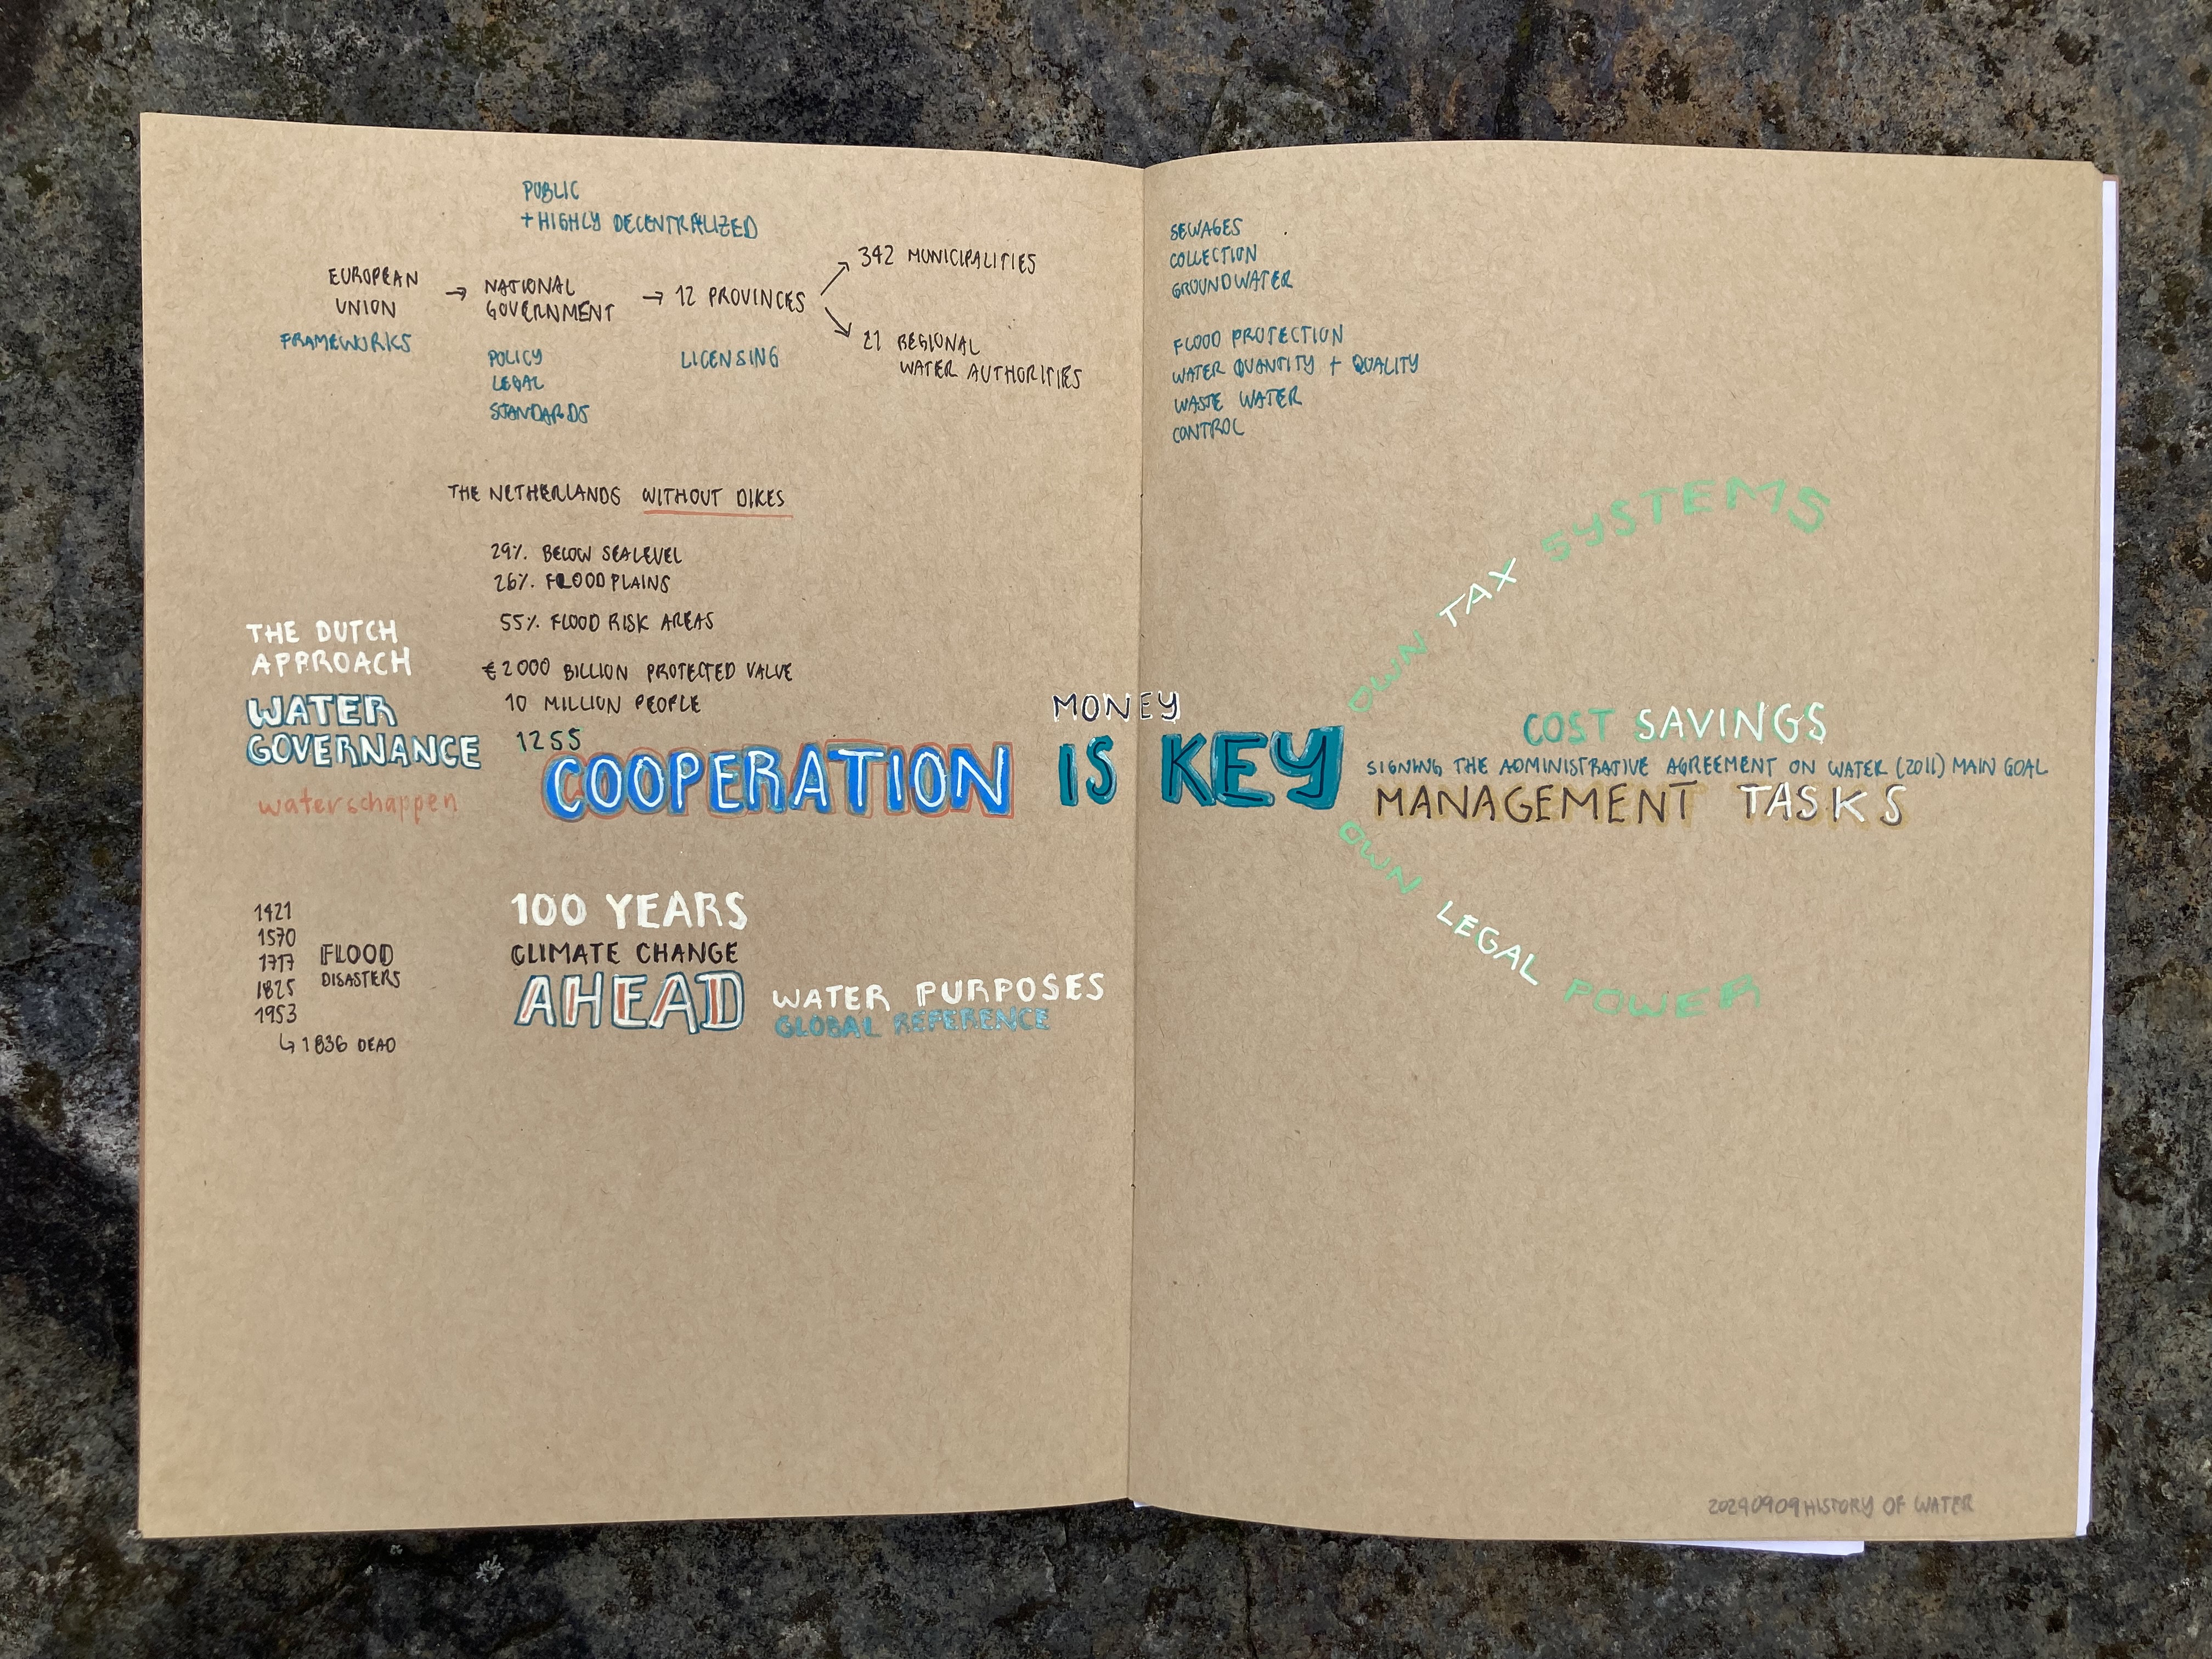 PUBLIC
+ HIGHLY DECENTRALIZED
EUROPEAN
UNION
FRAMEWORKS
→ NATIONAL
GOVERNMENT
POLICY
LEGAL
STANDARDS
→ 12 PROVINCES
LICENSING
342 MUNICIPALITIES
21 REGIONAL
WATER AUTHORITIES
SEWAGES
COLLECTION
GROUNDWATER
FLOOD PROTECTION
WATER QUANTITY + QUALITY
WASTE WATER
CONTROL
THE NETHERLANDS WITHOUT DIKES
29% BELOW SEALEVEL
26% FLOODPLAINS
55% FLOOD RISK AREAS
€2000 BILLION PROTECTED VALUE
10 MILLION PEOPLE
THE DUTCH
APPROACH
WATER
GOVERNANCE
waterschappen
1255
COOPERATION IS KEY
MONEY
OWN TAX SYSTEMS
COST SAVINGS
SIGNING THE ADMINISTRATIVE AGREEMENT ON WATER (2011) MAIN GOAL
MANAGEMENT TASKS
OWN LEGAL POWER
1421
1570
1717
1825
1953
FLOOD
DISASTERS
↳ 1836 DEAD
100 YEARS
CLIMATE CHANGE
AHEAD
WATER PURPOSES
GLOBAL REFERENCE
20240909 HISTORY OF WATER